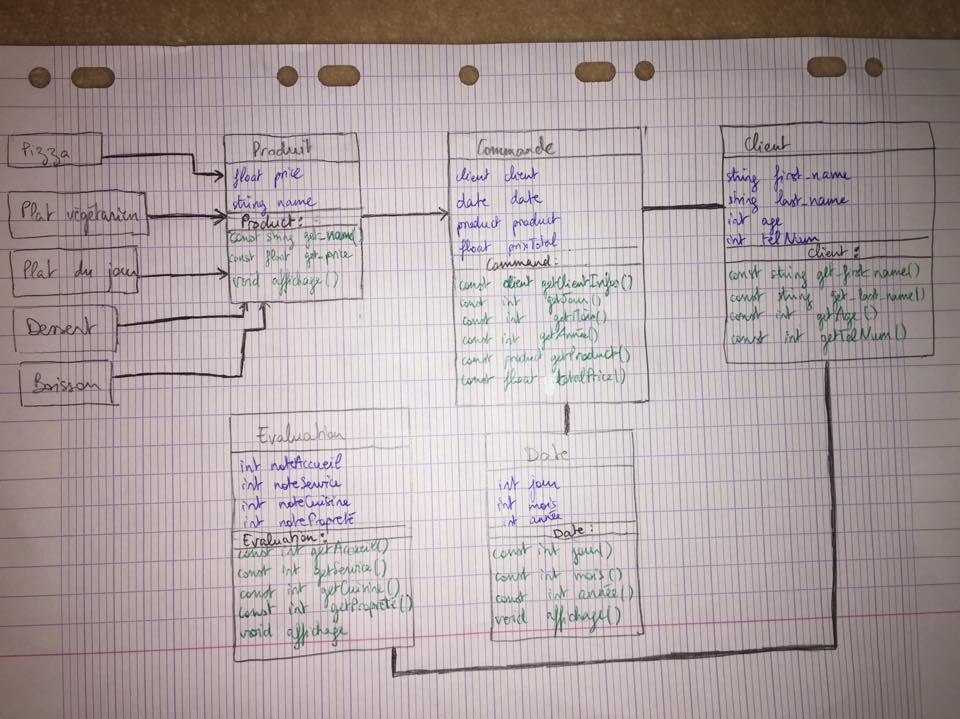 Pizza
Plat végétarien
Plat du jour
Dessert
Boisson
Produit
float price
string name
Product:
const string get_name()
const float get_price
void affichage()
Commande
client client
date date
product product
float prixTotal
Command:
const client getClientInfos()
const int getJour()
const int getMois()
const int getAnnée()
const product getProduct()
const float totalPrice()
Client
string first_name
string last_name
int age
int telNum
Client:
const string get_first_name()
const string get_last_name()
const int getAge()
const int getTelNum()
Evaluation
int noteAccueil
int noteService
int noteCuisine
int notePropreté
Evaluation:
const int getAccueil()
const int getService()
const int getCuisine()
const int getPropreté()
void affichage
Date
int jour
int mois
int année
Date:
const int jour()
const int mois()
const int année()
void affichage()